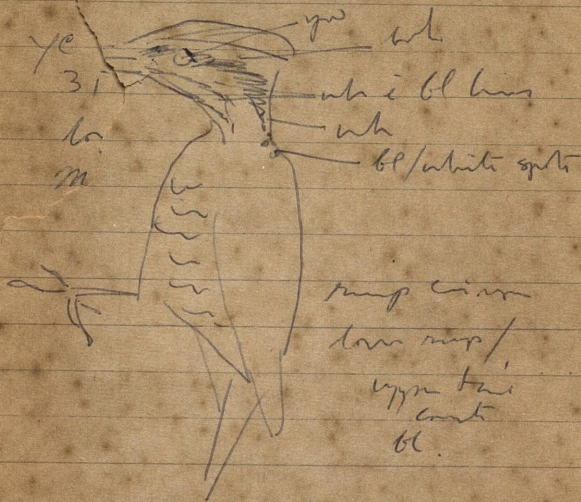 ye
wh
3
wh c bl lines
wh
bl/white spots
m
rump crimson
lower rump/
upper tail
coverts
bl.